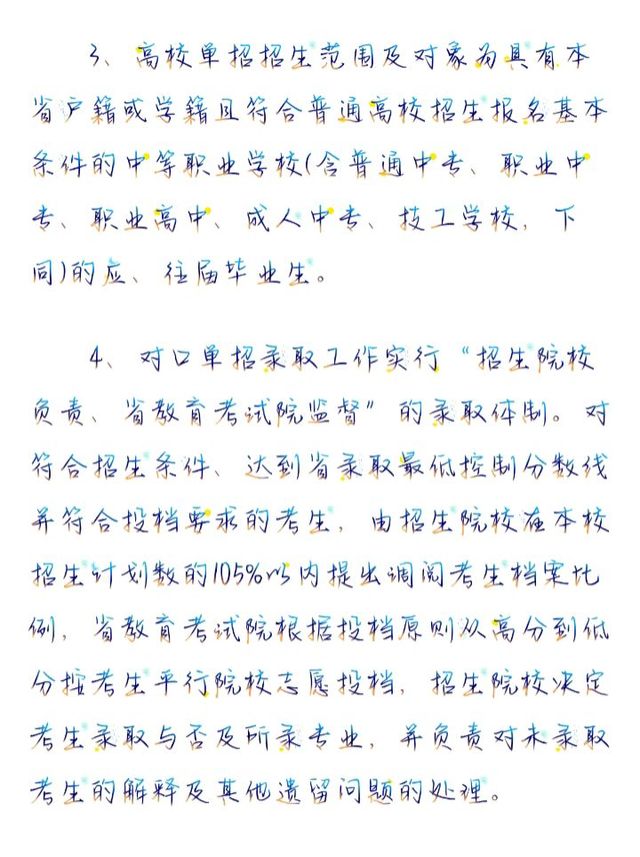 3、高校单招招生范围及对象为具有本
省户籍或学籍且符合普通高校招生报名基本
条件的中等职业学校(含普通中专、职业中
专、职业高中、成人中专、技工学校，下
同)的应、往届毕业生。
4、对口单招录取工作实行“招生院校
负责、省教育考试院监督”的录取体制。对
符合招生条件、达到省录取最低控制分数线
并符合投档要求的考生，由招生院校在本校
招生计划数的105%以内提出调阅考生档案比
例，省教育考试院根据投档原则从高分到低
分按考生平行院校志愿投档，招生院校决定
考生录取与否及所录专业，并负责对未录取
考生的解释及其他遗留问题的处理。